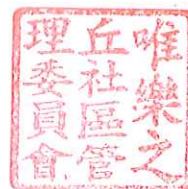 唯樂之
丘社區管
理委員會